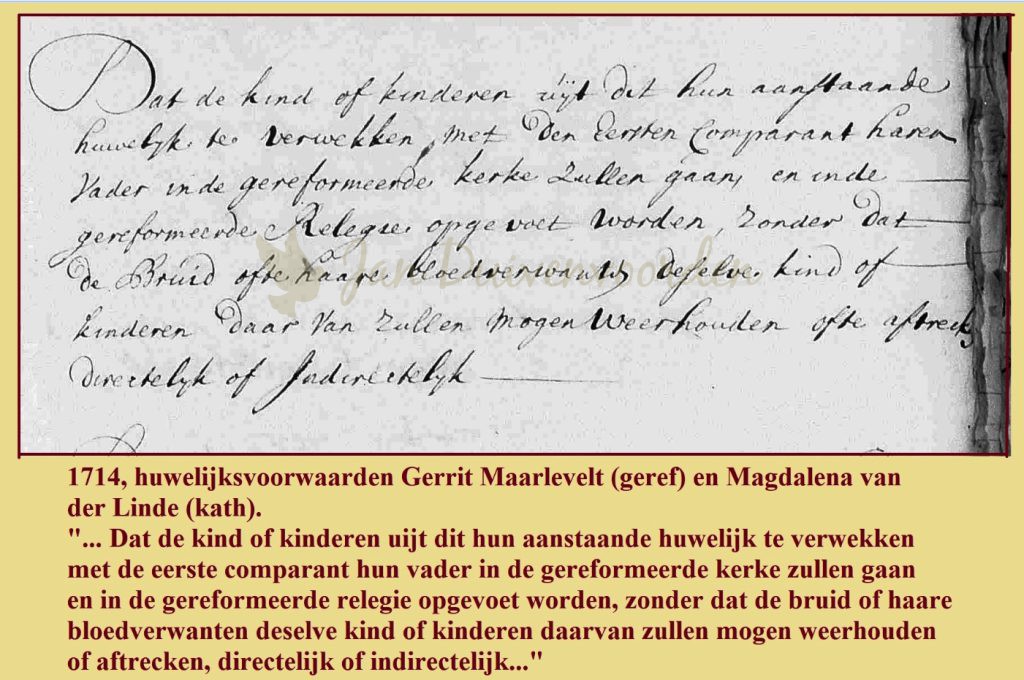 Dat de kind of kinderen uijt dit hun aanstaande
huwelyk te verwekken, met den Eersten Comparant haren
Vader in de gereformeerde kerke Zullen gaan, en in de
gereformeerde Relegie opgevoet worden, Zonder dat
de Bruid ofte haare bloedverwants deselve kind of
kinderen daar Van Zullen mogen Weerhouden ofte aftreck
directelyk of Indirectelyk
Jan Duivenvoorden
1714, huwelijksvoorwaarden Gerrit Maarlevelt (geref) en Magdalena van
der Linde (kath).
"... Dat de kind of kinderen uijt dit hun aanstaande huwelijk te verwekken
met de eerste comparant hun vader in de gereformeerde kerke zullen gaan
en in de gereformeerde relegie opgevoet worden, zonder dat de bruid of haare
bloedverwanten deselve kind of kinderen daarvan zullen mogen weerhouden
of aftrecken, directelijk of indirectelijk..."